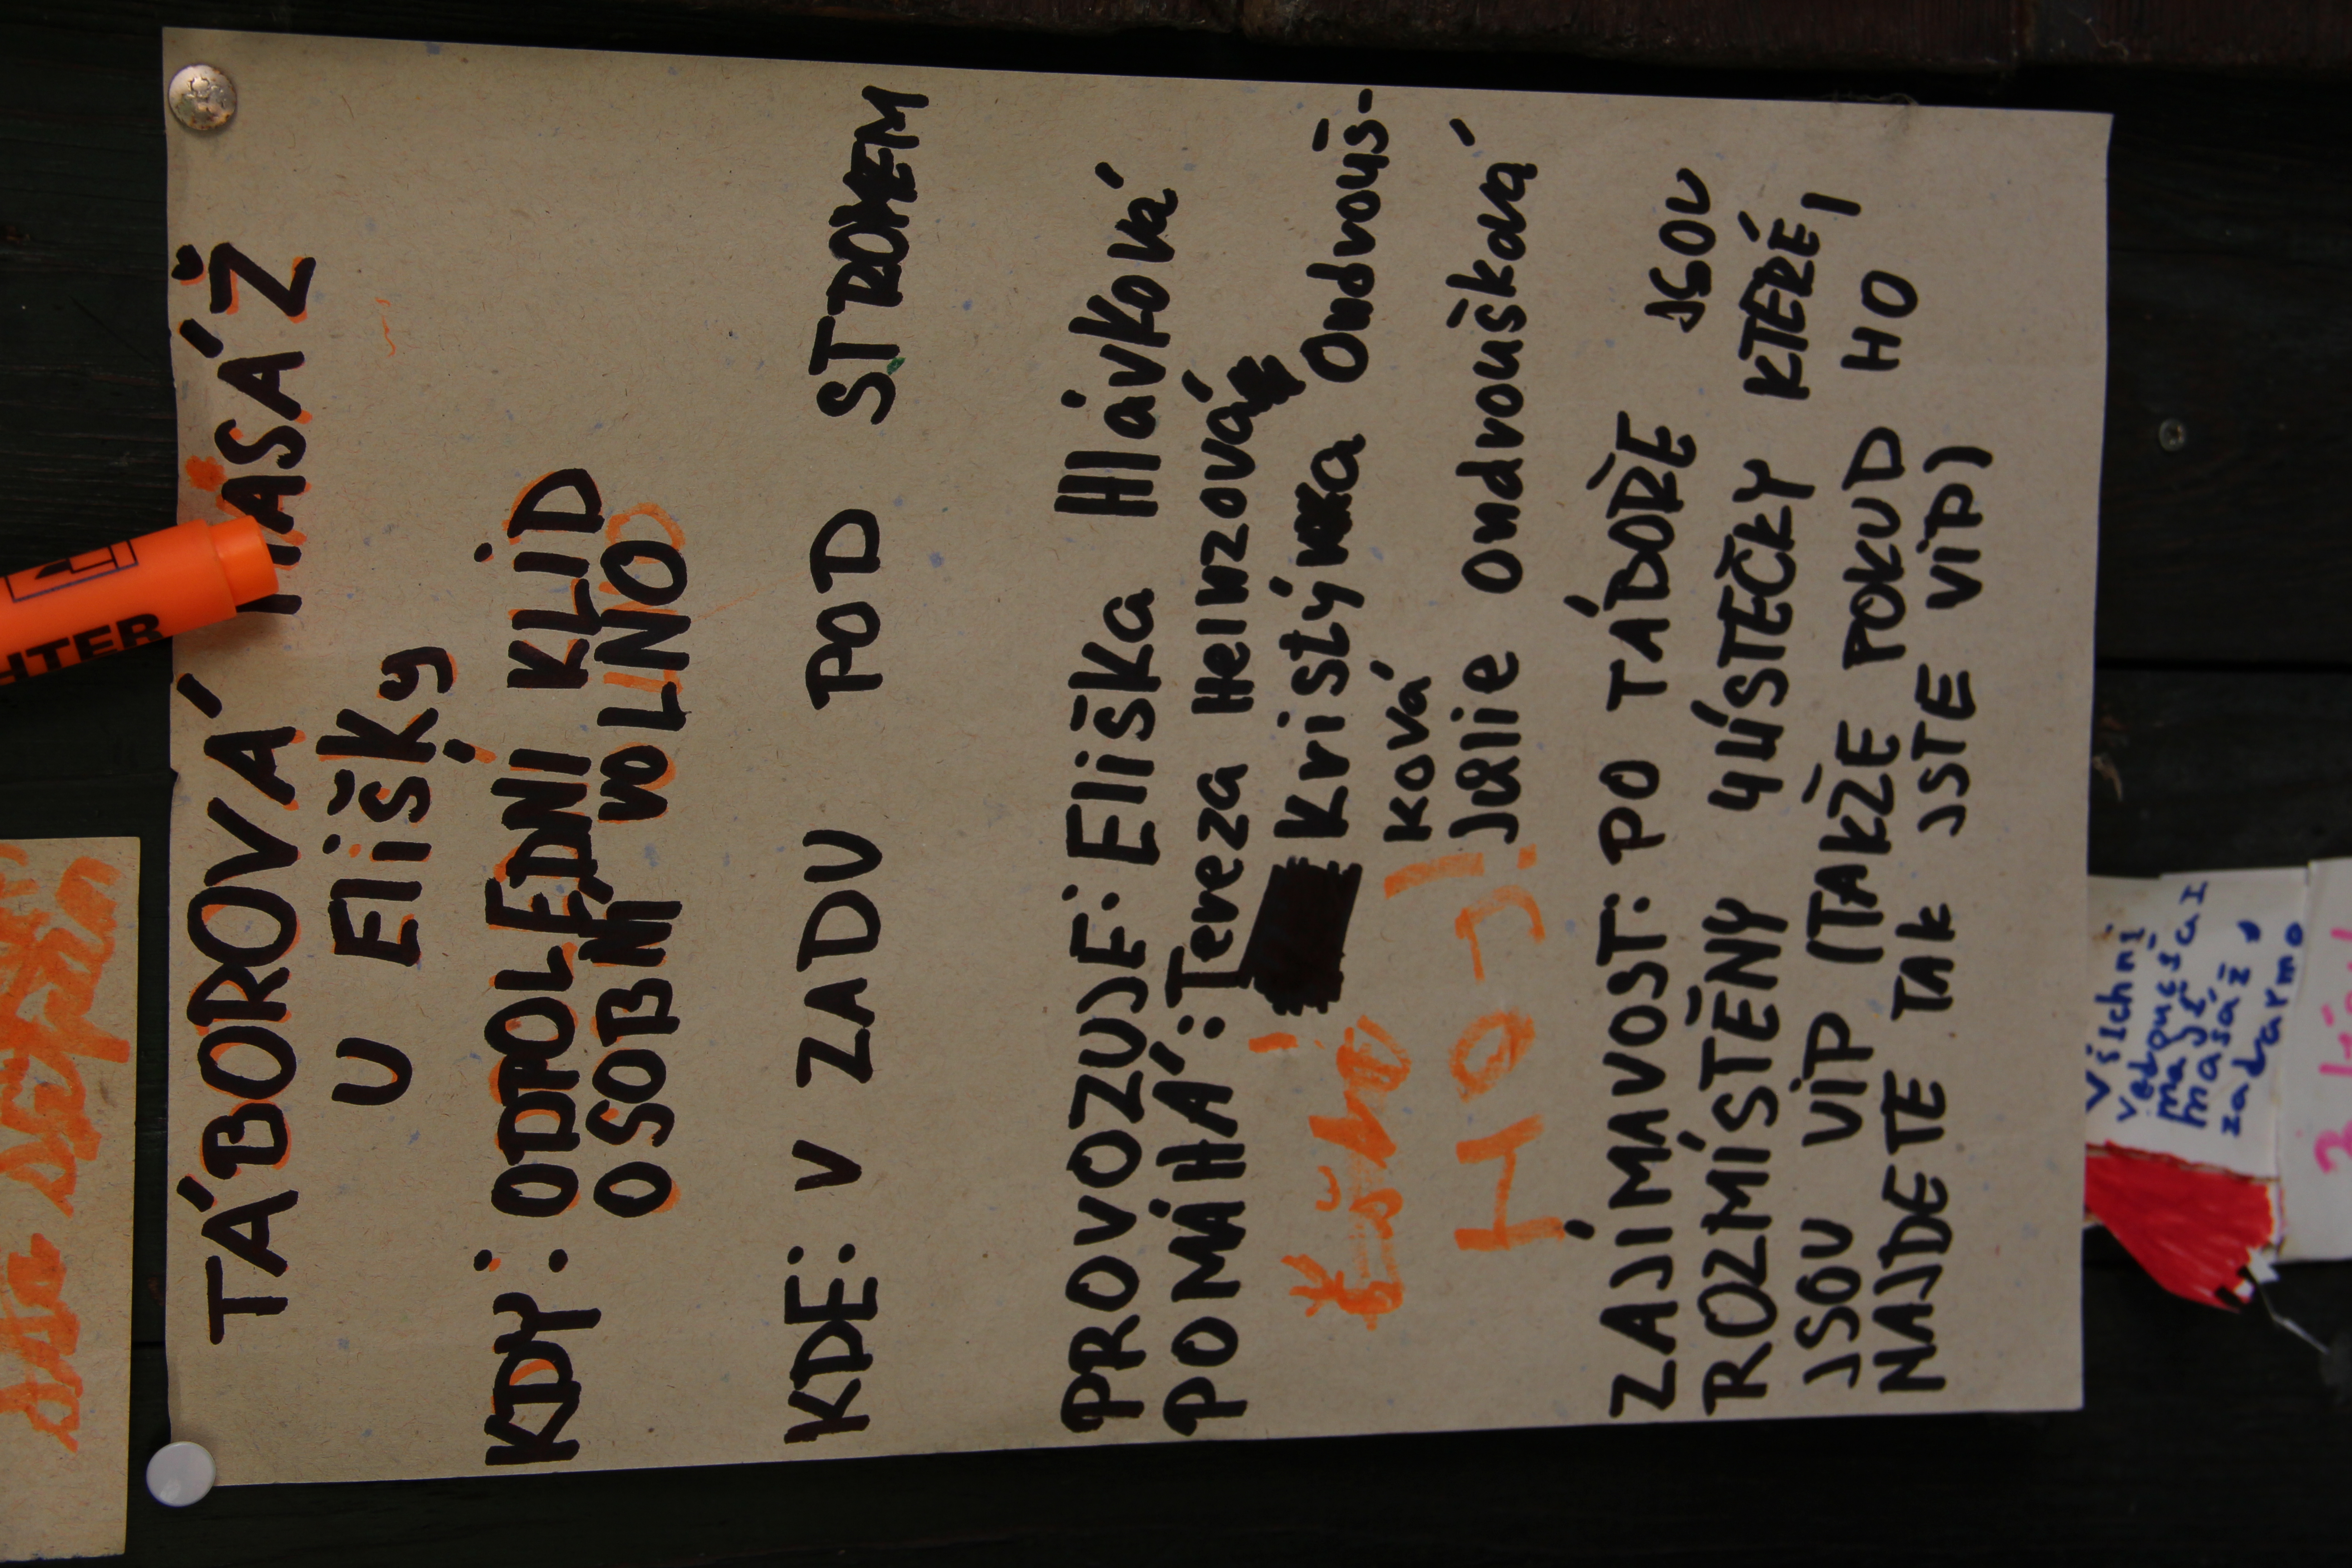 TÁBOROVÁ MASÁŽ
U Elišky
KDY: ODPOLEDNÍ KLID
OSOBNÍ VOLNO
KDE: V ZADU POD STROMEM
PROVOZUJE: Eliška Hlávková
POMÁHÁ: Tereza Heinzová
Kristýnka Ondrouš-
ková
Julie Ondroušková
HQJ!
ZAJÍMAVOST: PO TÁBOŘE JSOU
ROZMÍSTĚNY 4 LÍSTEČKY KTERÉ
JSOU VIP (TAKŽE POKUD HO
NAJDETE TAK JSTE VIP)
HTER
Všichni
vedoucí
mají
masáž
zadarmo